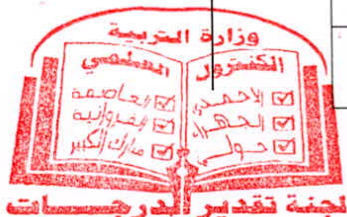 وزارة التربية
الكنترول العلمي
☑ الأحمدي
☑ الجهراء
☑ حولي
☑ العاصمة
☑ الفروانية
☑ مبارك الكبير
لجنة تقدير الدرجات